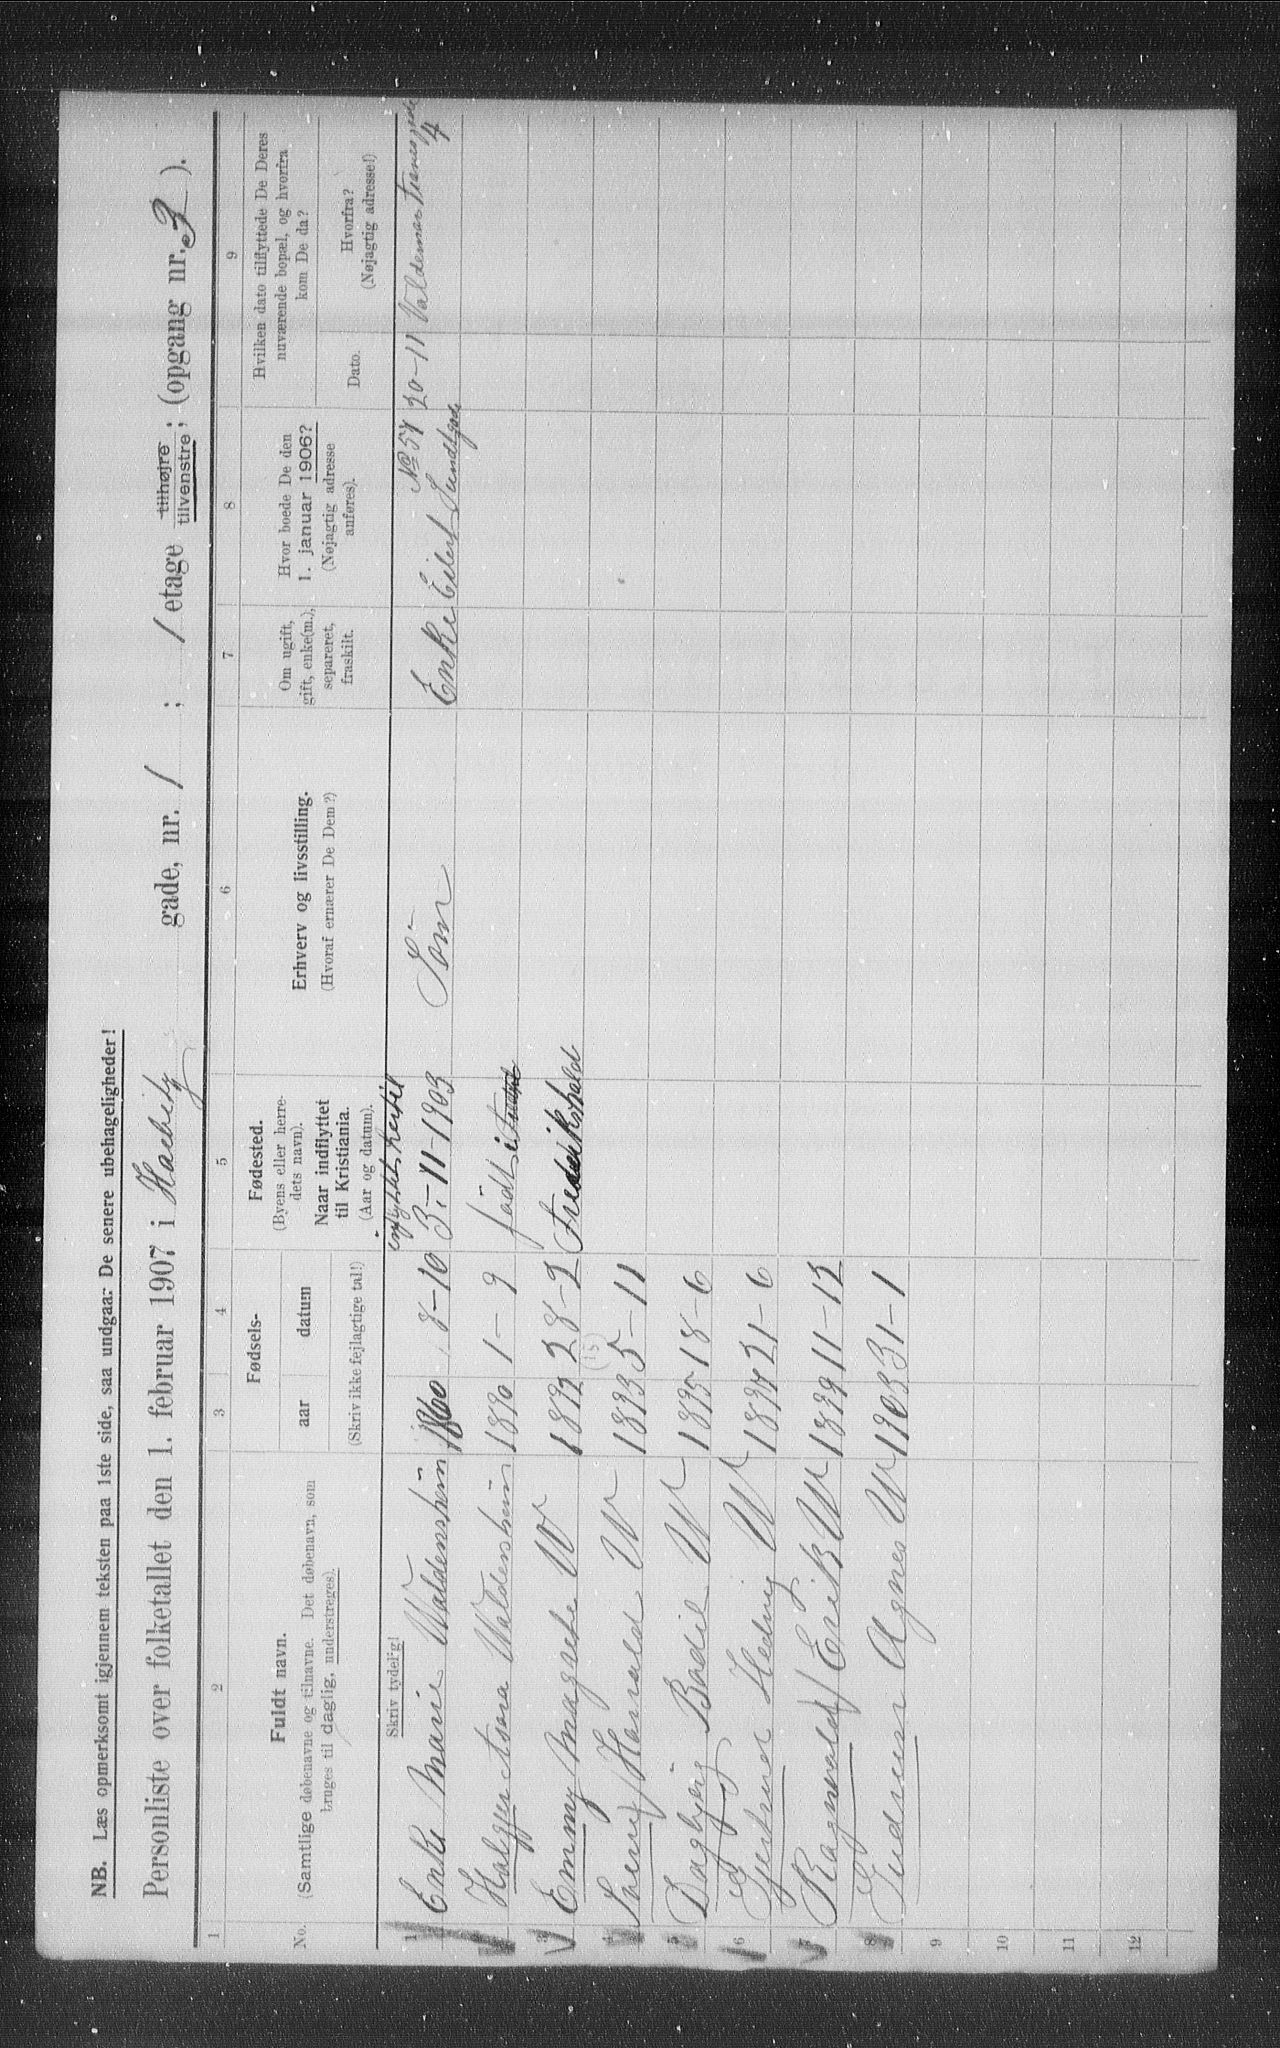 NB. Læs opmerksomt igjennem teksten paa 1ste side, saa undgaar De senere ubehageligheder!
Personliste over folketallet den 1. februar 1907 i gade, nr. 1; 1 etage tilhøjre tilvenstre; (opgang nr. 3).
1 2 3 4 5 6 7 8 9
No.
Fuldt navn.
(Samtlige døbenavne og tilnavne. Det døbenavn, som
bruges til daglig, understreges).
Skriv tydelig!
Fødsels-
aar datum
(Skriv ikke fejlagtige tal!)
Fødested.
(Byens eller herre-
dets navn).
Naar indflyttet
til Kristiania.
(Aar og datum).
Erhverv og livsstilling.
(Hvoraf ernærer De Dem?)
Om ugift,
gift, enke(m.),
separeret,
fraskilt.
Hvor boede De den
1. januar 1906?
(Nøjagtig adresse
anføres).
Hvilken dato tilflyttede De Deres
nuværende bopæl, og hvorfra
kom De da?
Dato.
Hvorfra?
(Nøjagtig adresse!)
indflyttet hertil
1 Enke Marie Waldenshim 1860 8-10 3-11-1903 Söm Enke Eilert Sundtgade No 57 20-11 Valdemar Tranesgade 4
2 Halgjer Waldenshim 1890 1-9 født i
3 Emmy Magrete W 1892 28-2 Fredrikshald
4 Harald W 1893 5-11 (15)
5 Dagbjørg Bodil W 1895 18-6
6 Gjertrud Hedvig W 1897 21-6
7 Ragnvald Erik W 1899 11-12
8 Gudrun Agnes W 1903 31-1
9
10
11
12